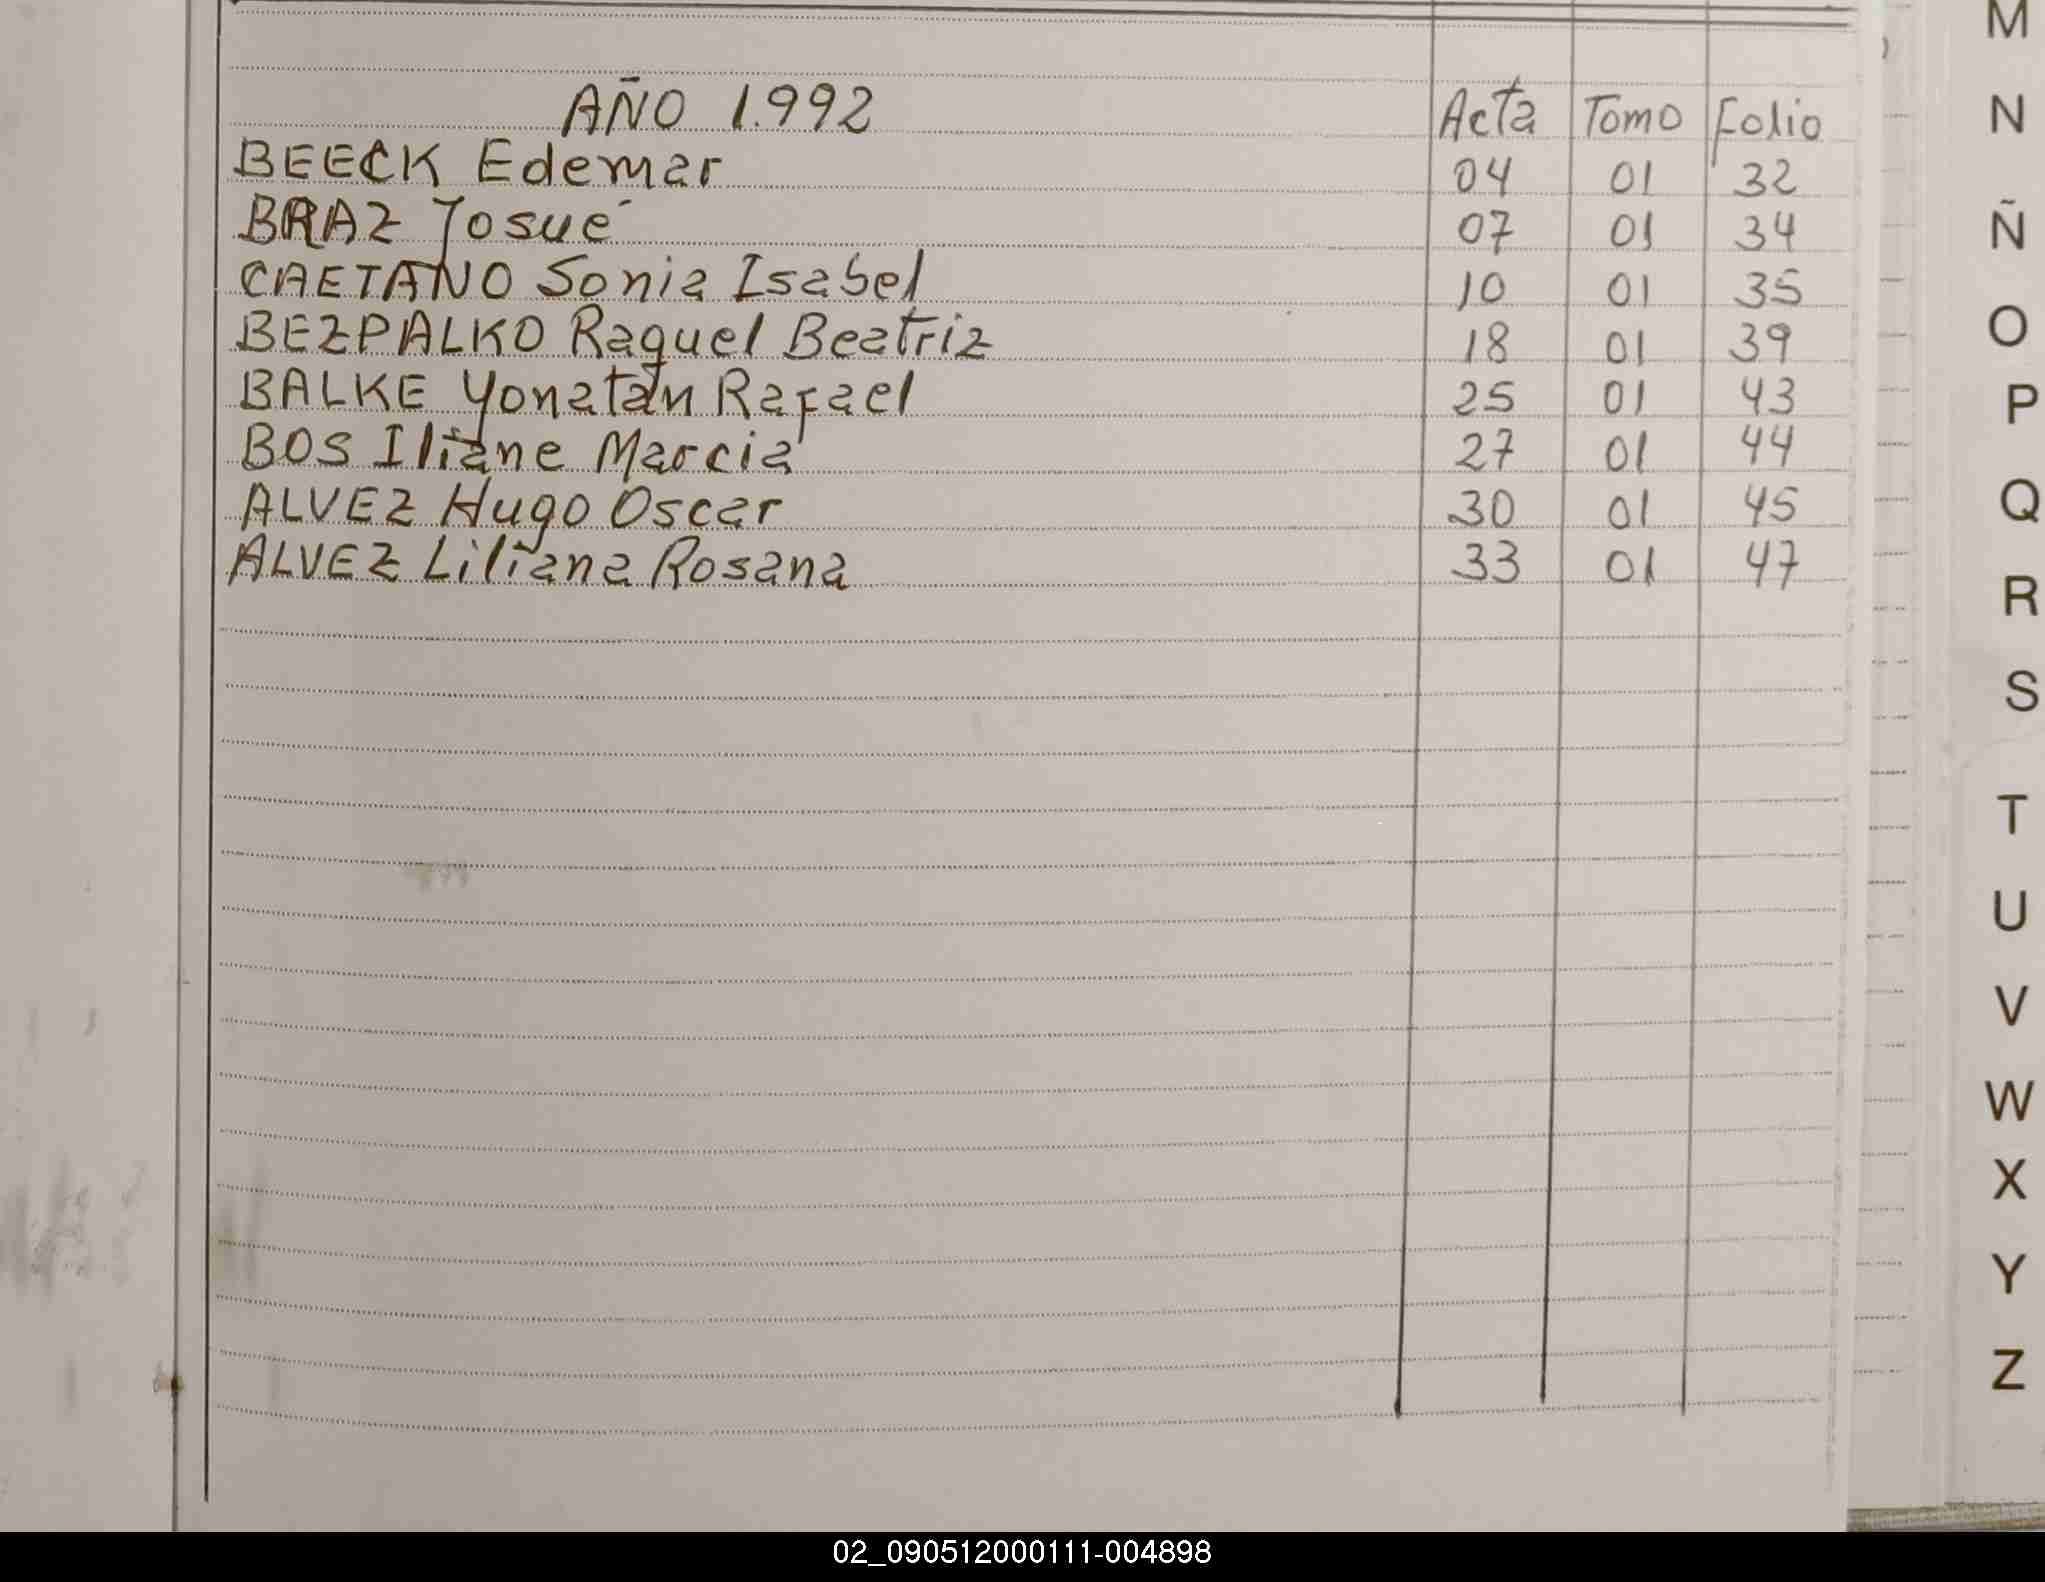 AÑO 1.992 Acta Tomo Folio
BEECK Edemar 04 01 32
BRAZ Josué 07 01 34
CAETANO Sonia Isabel 10 01 35
BEZPALKO Raquel Beatriz 18 01 39
BALKE Yonatan Rafael 25 01 43
BOS Iliane Marcia 27 01 44
ALVEZ Hugo Oscar 30 01 45
ALVEZ Liliana Rosana 33 01 47
M
N
Ñ
O
P
Q
R
S
T
U
V
W
X
Y
Z
02_090512000111-004898